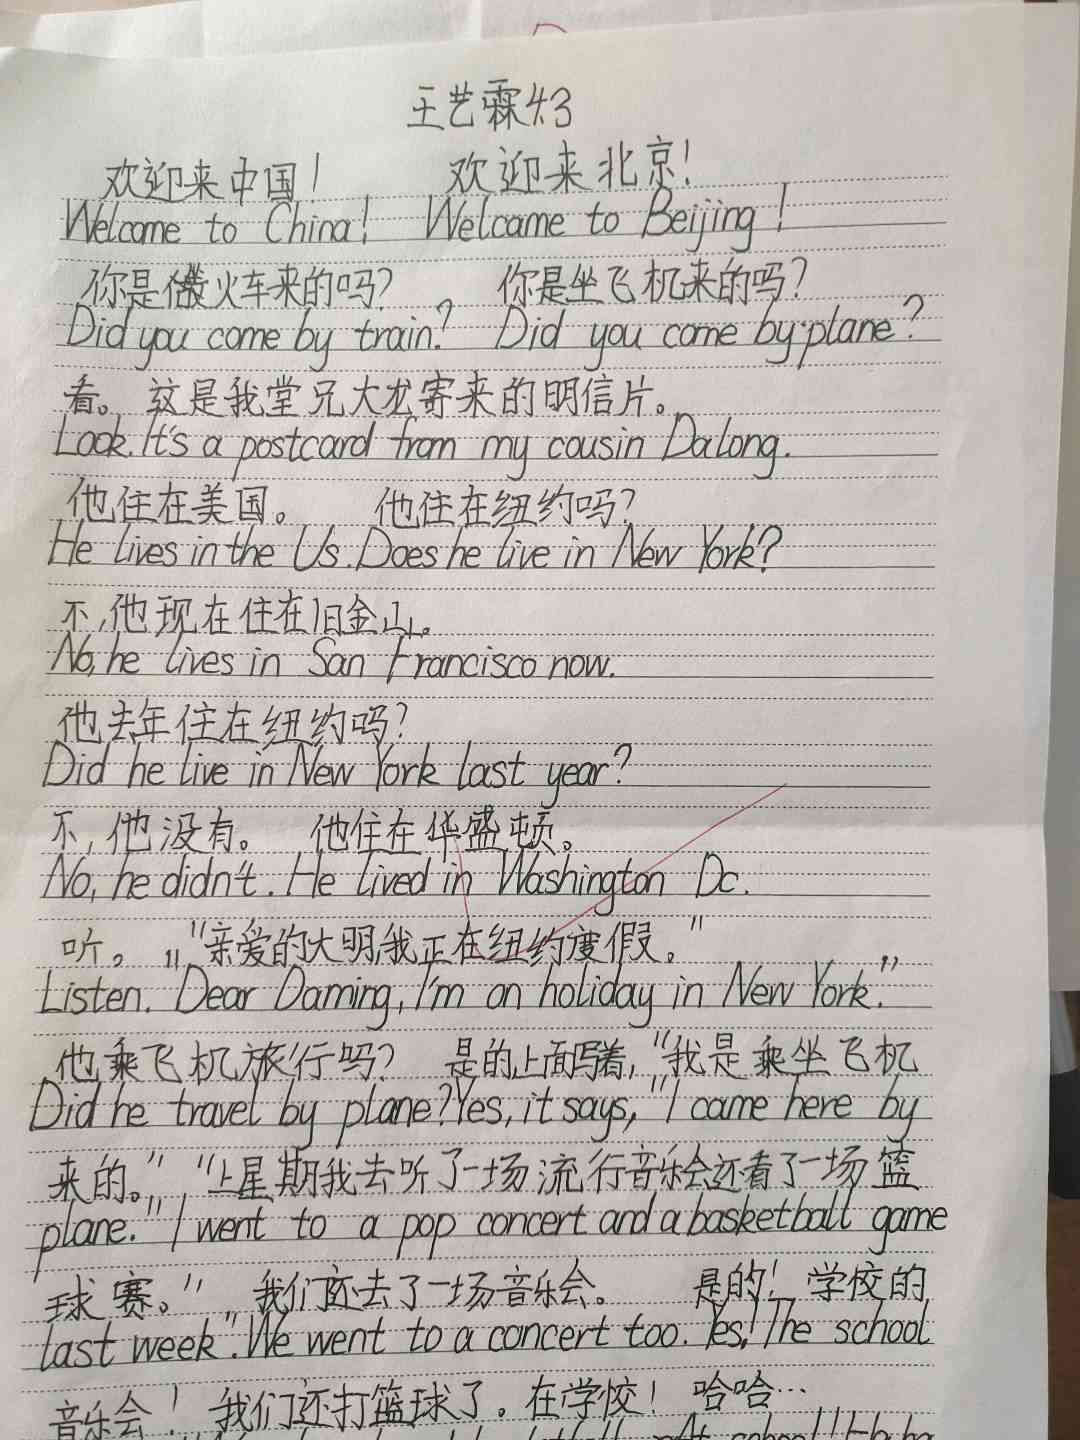 王艺霖 4.3
欢迎来中国! 欢迎来北京!
Welcome to China! Welcome to Beijing!
你是乘火车来的吗? 你是坐飞机来的吗?
Did you come by train? Did you come by plane?
看。这是我堂兄大龙寄来的明信片。
Look. It's a postcard from my cousin Dalong.
他住在美国。 他住在纽约吗?
He lives in the Us. Does he live in New York?
不,他现在住在旧金山。
No, he lives in San Francisco now.
他去年住在纽约吗?
Did he live in New York last year?
不,他没有。 他住在华盛顿。
No, he didn't. He lived in Washington Dc.
听。"亲爱的大明,我正在纽约度假。"
Listen. "Dear Daming, I'm on holiday in New York."
他乘飞机旅行吗? 是的,上面写着,"我是乘坐飞机
Did he travel by plane? Yes, it says, "I came here by
来的。" "上星期我去听了一场流行音乐会还看了一场篮
plane." I went to a pop concert and a basketball game
球赛。" 我们还去了一场音乐会。 是的! 学校的
last week". We went to a concert too. Yes! The school
音乐会! 我们还打篮球了。在学校! 哈哈…
school!